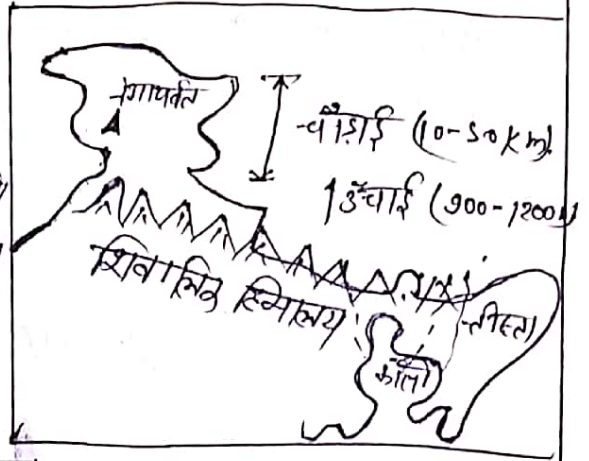 नंगापर्वत
चौड़ाई (10-50 Km)
ऊँचाई (900-1200 m)
शिवालिक हिमालय
तीस्ता
काली